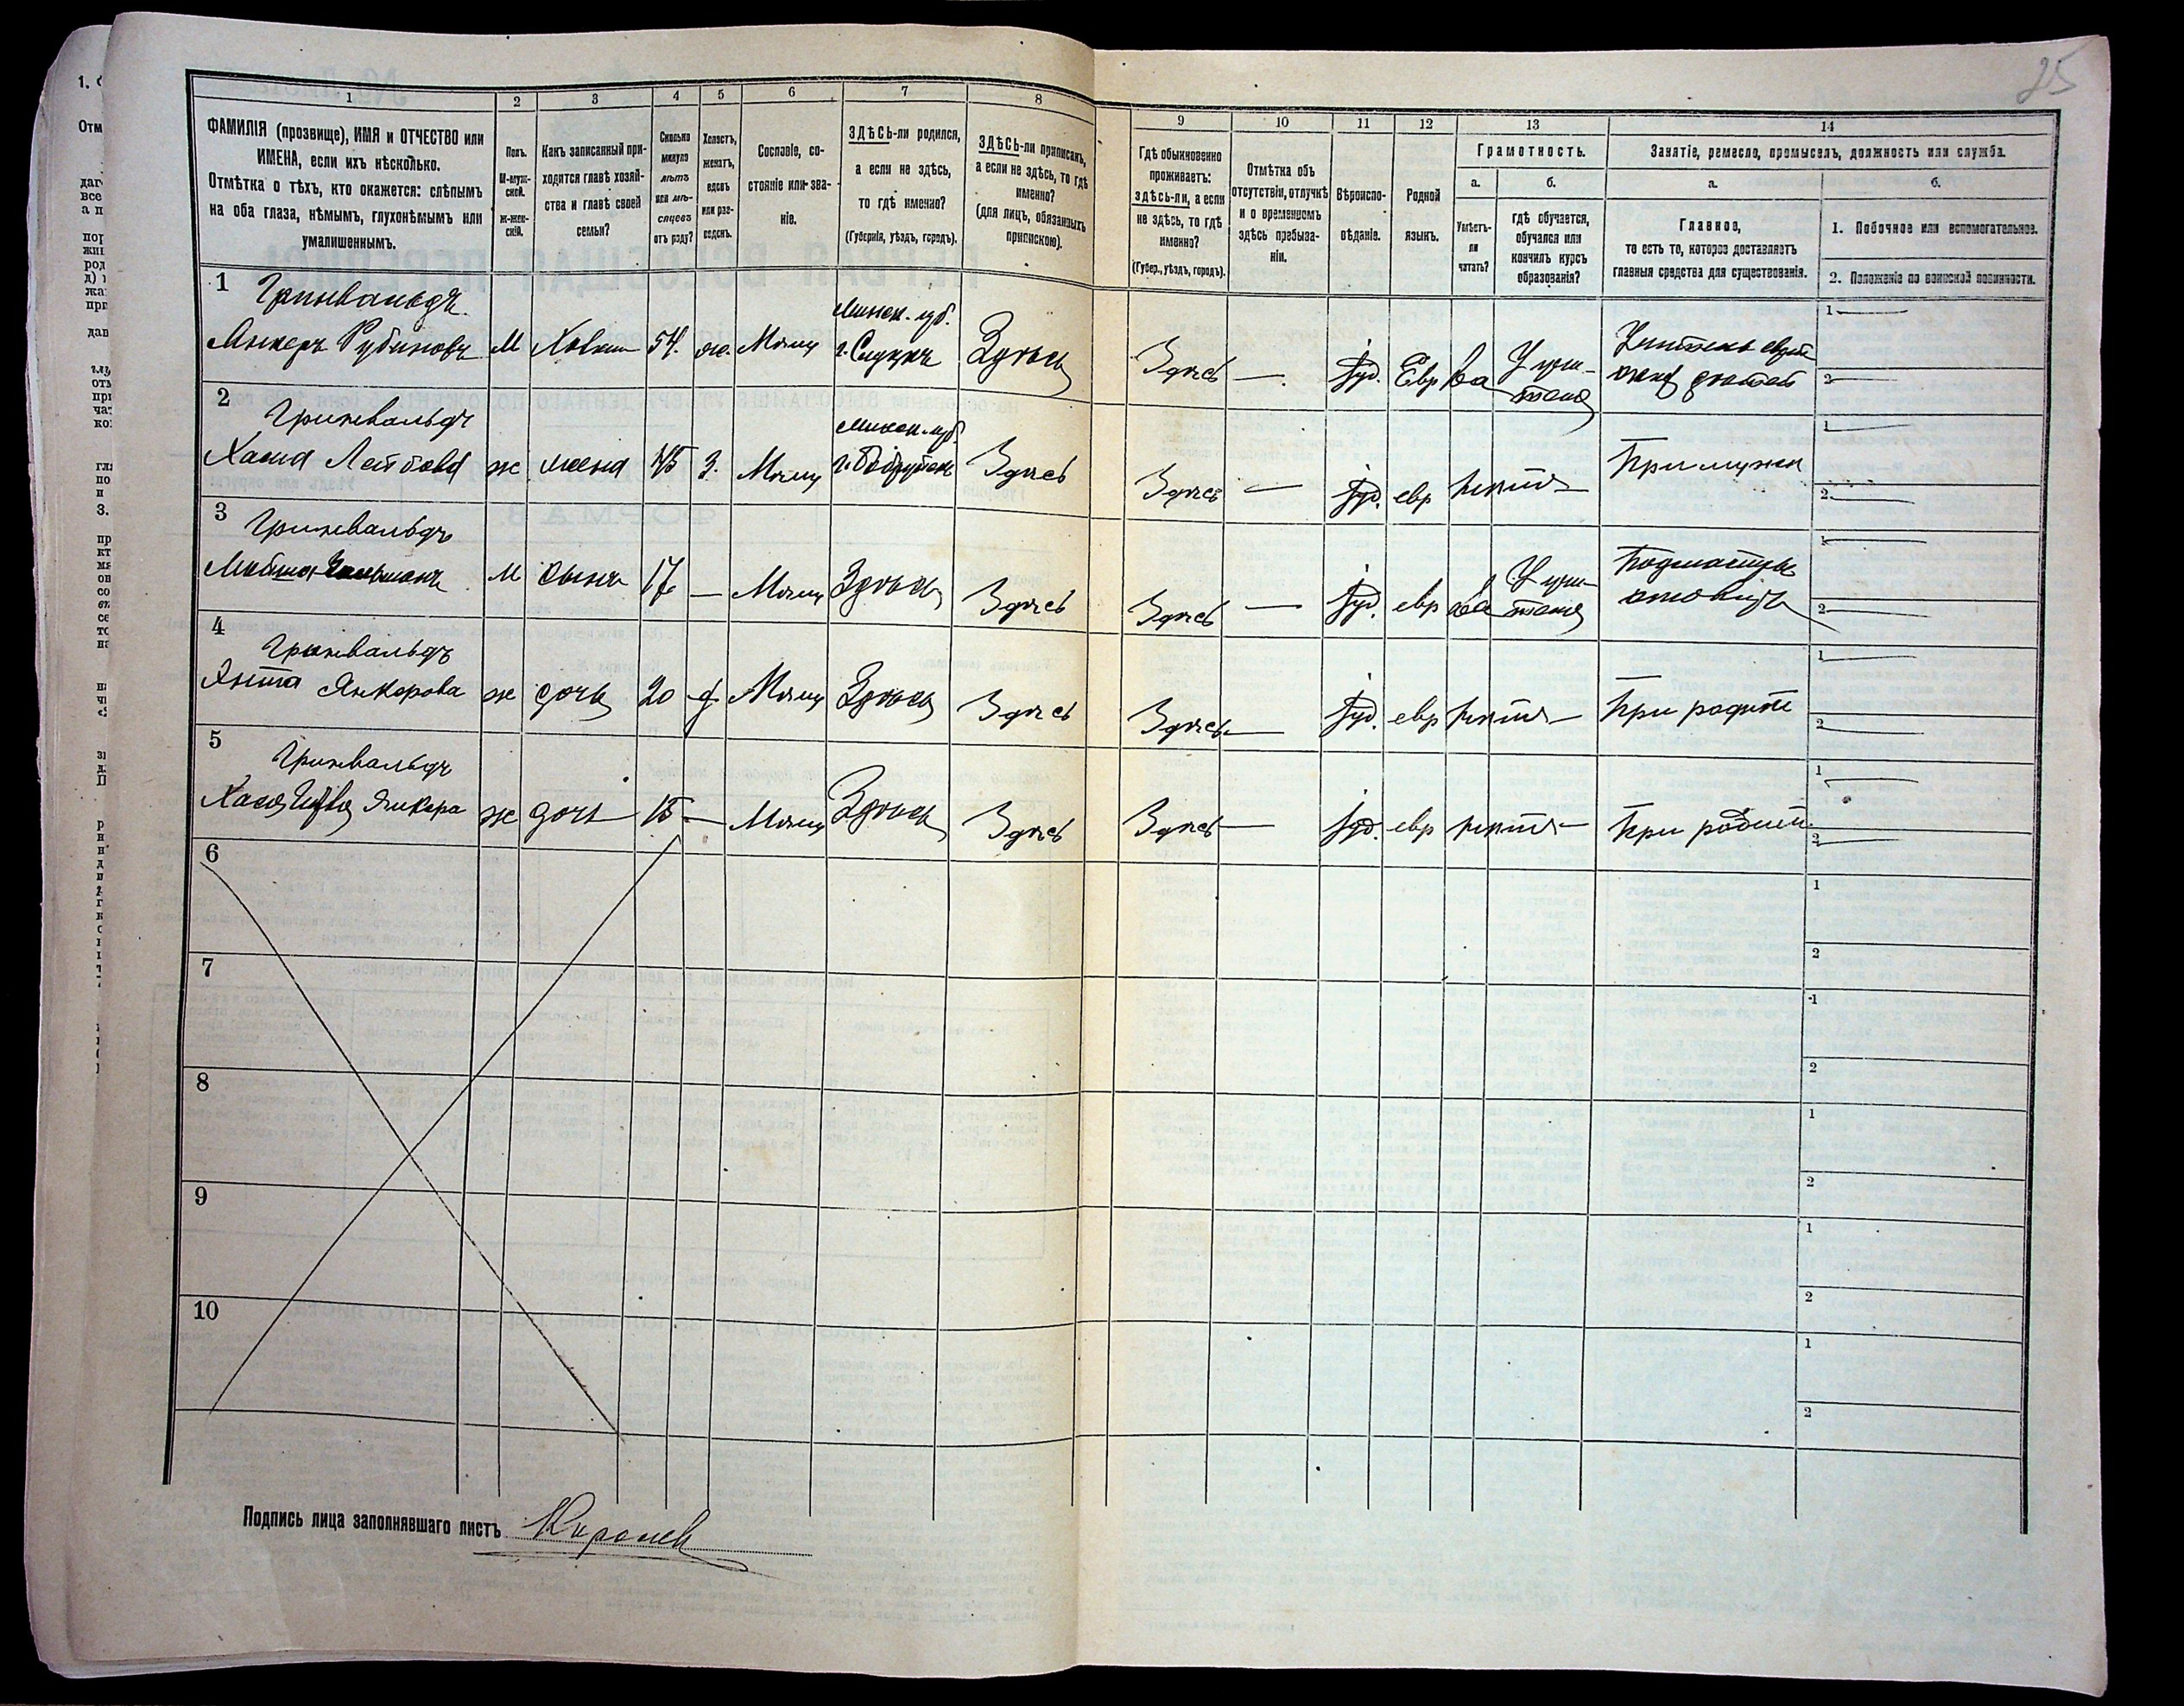 25
1
2
3
4
5
6
7
8
9
10
11
12
13
14
ФАМИЛІЯ (прозвище), ИМЯ и ОТЧЕСТВО или
ИМЕНА, если ихъ нѣсколько.
Отмѣтка о тѣхъ, кто окажется: слѣпымъ
на оба глаза, нѣмымъ, глухонѣмымъ или
умалишеннымъ.
Полъ.
М-муж-
ской.
Ж-жен-
скій.
Какъ записанный при-
ходится главѣ хозяй-
ства и главѣ своей
семьи?
Сколько
минуло
лѣтъ
или мѣ-
сяцевъ
отъ роду?
Холостъ,
женатъ,
вдовъ
или раз-
веденъ.
Сословіе, со-
стояніе или зва-
ніе.
ЗДѢСЬ-ли родился,
а если не здѣсь,
то гдѣ именно?
(Губернія, уѣздъ, городъ).
ЗДѢСЬ-ли приписанъ,
а если не здѣсь, то гдѣ
именно?
(для лицъ, обязанныхъ
припискою).
Гдѣ обыкновенно
проживаетъ:
здѣсь-ли, а если
не здѣсь, то гдѣ
именно?
(Губер., уѣздъ, городъ).
Отмѣтка объ
отсутствіи, отлучкѣ
и о временномъ
здѣсь пребыва-
ніи.
Вѣроиспо-
вѣданіе.
Родной
языкъ.
Грамотность.
а.
Умѣетъ-
ли
читать?
б.
гдѣ обучается,
обучался или
кончилъ курсъ
образованія?
Занятіе, ремесло, промыселъ, должность или служба.
а.
Главное,
то есть то, которое доставляетъ
главныя средства для существованія.
б.
1. Побочное или вспомогательное.
2. Положеніе по воинской повинности.
1 Гринвальдъ
Янкеръ Рубиновъ М Хозяин 54. ж. Мѣщ
Минск. губ.
г. Слуцкъ Здѣсь Здѣсь — Іуд. Евр да
У учи-
теля
Учитель еврей
дѣтей
1
2
2 Гринвальдъ
Хася Лейбова ж жена 45 З. Мѣщ
Минск. губ.
г. Бобруйск Здѣсь Здѣсь — Іуд. евр нѣтъ — При мужѣ
1
2
3 Гринвальдъ
М сынъ 17 — Мѣщ Здѣсь Здѣсь Здѣсь — Іуд. евр да
У учи-
теля
Подмастерье
1
2
4 Гринвальдъ
Янкерова ж дочь 20 д Мѣщ Здѣсь Здѣсь Здѣсь — Іуд. евр нѣтъ — При родит
1
2
5 Гринвальдъ
Янкера ж дочь 15 — Мѣщ Здѣсь Здѣсь Здѣсь — Іуд. евр нѣтъ — При родит
1
2
6
1
2
7
1
2
8
1
2
9
1
2
10
1
2
Подпись лица заполнявшаго листъ